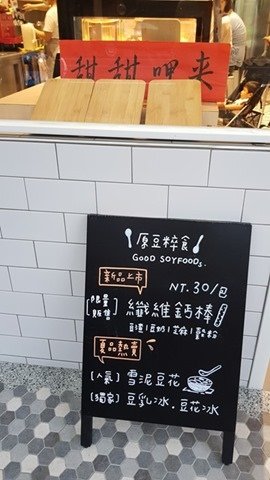 甜甜哩來
原豆粹食
GOOD SOYFOODs.
新品上市
NT.30/包
[限量販售] 纖維鈣棒
豆渣|豆奶|芝麻|穀粉
夏品熱賣
[人氣] 雪泥豆花
[獨家] 豆乳冰.豆花冰